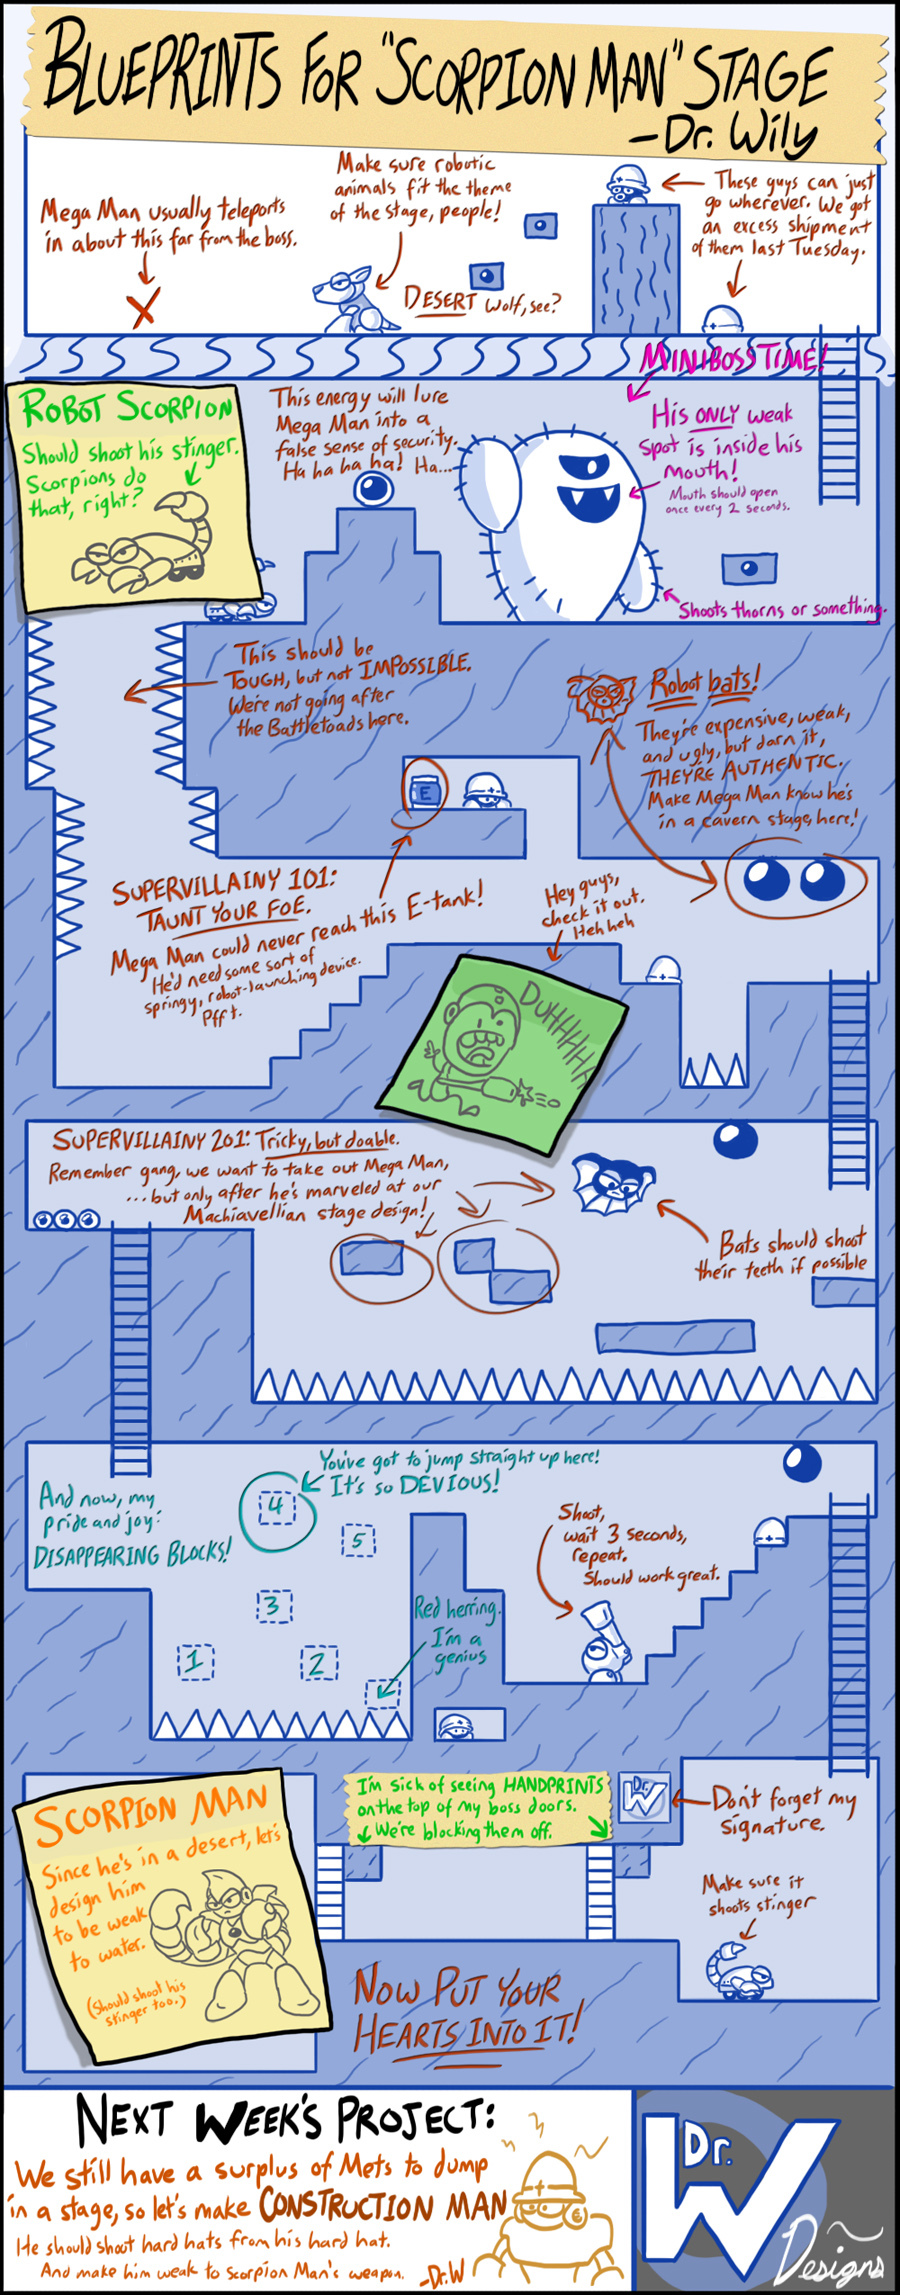 BLUEPRINTS FOR "SCORPION MAN" STAGE
-Dr. Wily
Mega Man usually teleports
in about this far from the boss.
Make sure robotic
animals fit the theme
of the stage, people!
DESERT Wolf, see?
These guys can just
go wherever. We got
an excess shipment
of them last Tuesday.
MINIBOSS TIME!
ROBOT SCORPION
Should shoot his stinger.
Scorpions do
that, right?
This energy will lure
Mega Man into a
false sense of security.
Ha ha ha ha! Ha...
His ONLY weak
spot is inside his
mouth!
Mouth should open
once every 2 seconds.
Shoots thorns or something.
This should be
TOUGH, but not IMPOSSIBLE.
We're not going after
the Battletoads here.
Robot bats!
They're expensive, weak,
and ugly, but darn it,
THEY'RE AUTHENTIC.
Make Mega Man know he's
in a cavern stage, here!
E
SUPERVILLAINY 101:
TAUNT YOUR FOE.
Mega Man could never reach this E-tank!
He'd need some sort of
springy, robot-launching device.
Pfft.
Hey guys,
check it out.
Heh heh
DUHHHHHH
SUPERVILLAINY 201: Tricky, but doable.
Remember gang, we want to take out Mega Man,
...but only after he's marveled at our
Machiavellian stage design!
Bats should shoot
their teeth if possible
And now, my
pride and joy:
DISAPPEARING BLOCKS!
You've got to jump straight up here!
It's so DEVIOUS!
4
5
3
1
2
Red herring.
I'm a
genius
Shoot,
wait 3 seconds,
repeat.
Should work great.
I'm sick of seeing HANDPRINTS
on the top of my boss doors.
We're blocking them off.
Dr.
W
Don't forget my
signature.
SCORPION MAN
Since he's in a desert, let's
design him
to be weak
to water.
(Should shoot his
stinger too.)
Make sure it
shoots stinger
NOW PUT YOUR
HEARTS INTO IT!
NEXT WEEK'S PROJECT:
We still have a surplus of Mets to dump
in a stage, so let's make CONSTRUCTION MAN
He should shoot hard hats from his hard hat.
And make him weak to Scorpion Man's weapon. -Dr.W
Dr.
W
Designs